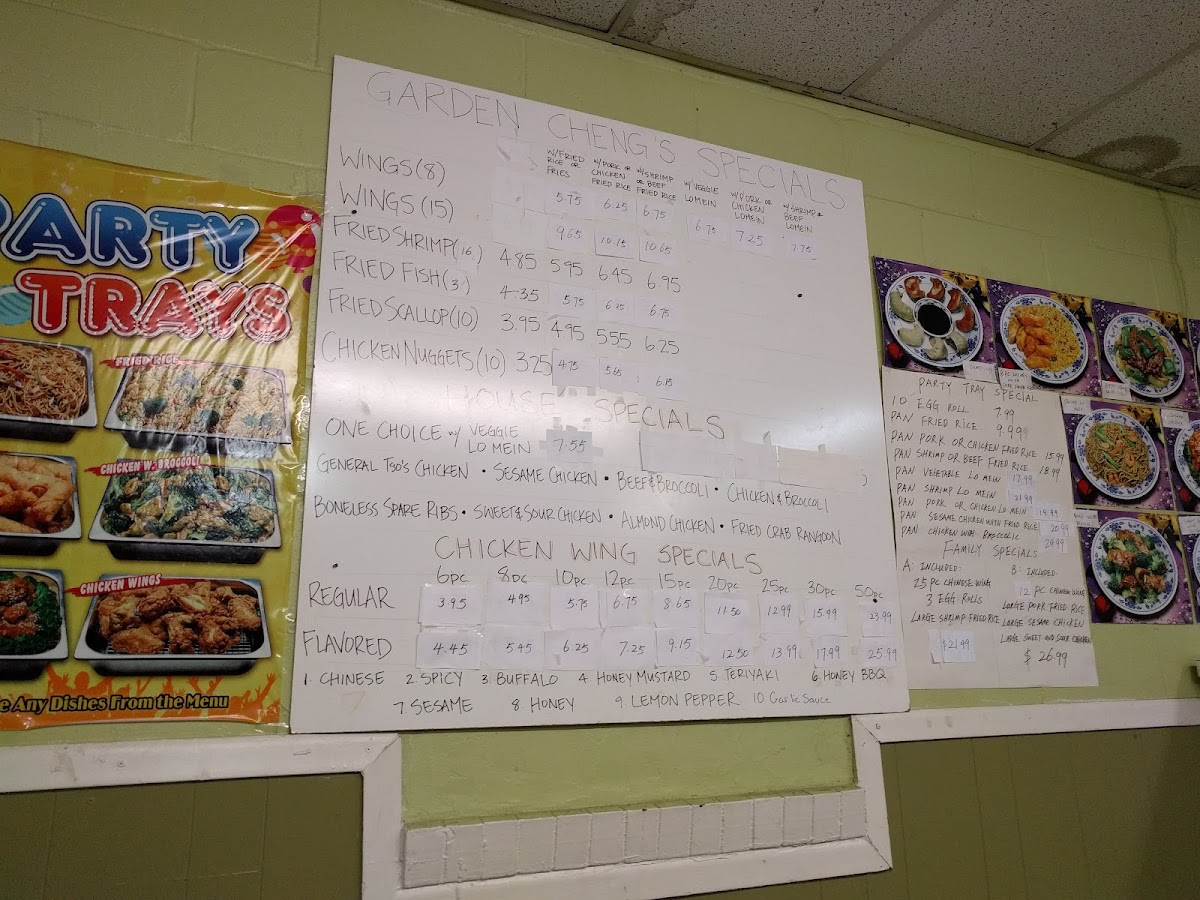 PARTY
TRAYS
FRIED RICE
CHICKEN W. BROCCOLI
CHICKEN WINGS
Any Dishes From the Menu
GARDEN CHENG'S SPECIALS
W/FRIED RICE OR FRIES
W/PORK OR CHICKEN FRIED RICE
W/SHRIMP OR BEEF FRIED RICE
W/VEGGIE LOMEIN
W/PORK OR CHICKEN LOMEIN
W/SHRIMP & BEEF LOMEIN
WINGS (8) 5.75 6.25 6.75 6.75 7.25 7.75
WINGS (15) 9.65 10.15 10.65
FRIED SHRIMP (16) 485 595 645 6.95
FRIED FISH (3) 4.35 5.75 6.25 6.75
FRIED SCALLOP (10) 3.95 495 555 625
CHICKEN NUGGETS (10) 325 4.75 5.65 6.15
HOUSE SPECIALS
ONE CHOICE W/ VEGGIE LO MEIN 7.55
GENERAL TSO'S CHICKEN • SESAME CHICKEN • BEEF & BROCCOLI • CHICKEN & BROCCOLI
BONELESS SPARE RIBS • SWEET & SOUR CHICKEN • ALMOND CHICKEN • FRIED CRAB RANGOON
CHICKEN WING SPECIALS
6PC 8PC 10PC 12PC 15PC 20PC 25PC 30PC 50PC
REGULAR 3.95 4.95 5.75 6.75 8.65 11.50 12.99 15.99 23.99
FLAVORED 4.45 5.45 6.25 7.25 9.15 12.50 13.99 17.99 25.99
1. CHINESE 2 SPICY 3. BUFFALO 4. HONEY MUSTARD 5 TERIYAKI 6. HONEY BBQ
7. SESAME 8 HONEY 9. LEMON PEPPER 10 Garlic Sauce
PARTY TRAY SPECIAL
10 EGG ROLL 7.99
PAN FRIED RICE 9.99
PAN PORK OR CHICKEN FRIED RICE 15.99
PAN SHRIMP OR BEEF FRIED RICE 18.99
PAN VEGETABLE LO MEIN 17.99
PAN SHRIMP LO MEIN 21.99
PAN PORK OR CHICKEN LO MEIN 19.99
PAN SESAME CHICKEN WITH FRIED RICE 20.99
PAN CHICKEN WITH BROCCOLIC 20.99
FAMILY SPECIALS
A: INCLUDED:
25 PC CHINESE WING
3 EGG ROLLS
LARGE SHRIMP FRIED RICE
$21.99
B: INCLUDED:
12 PC CHINESE WINGS
LARGE PORK FRIED RICE
LARGE SESAME CHICKEN
LARGE SWEET AND SOUR CHICKEN
$26.99